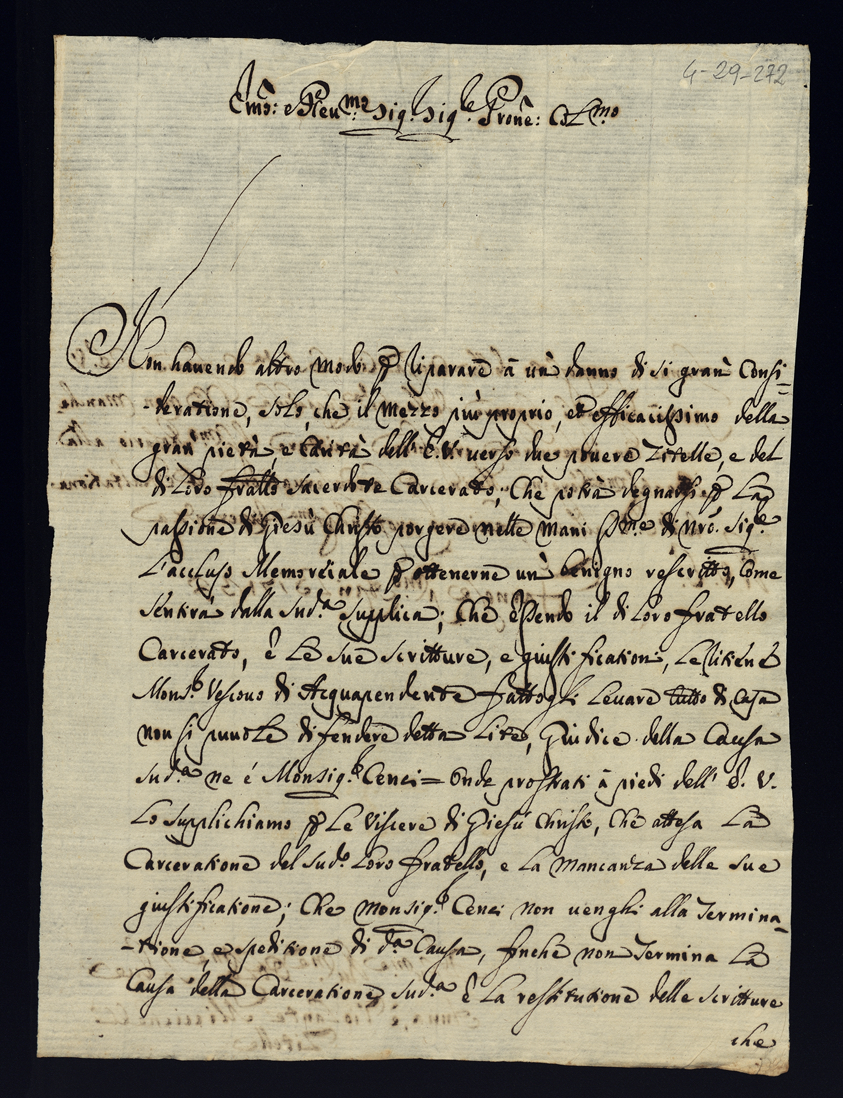 4-29-272
Emo: e Reu.mo Sig.r Sig.re Prone: Col.mo
Non hauendo altro modo p riparare à un danno di si gran Consi=
-deratione, solo, che il mezzo più proprio, et efficacissimo della
gran pietà e Carità dell' E. V. uerso due pouere Zitelle, e del
di Loro fratello Sacerdote Carcerato; Che potrà degnarsi p La
passione di Giesù Christo porgere nelle mani Sme di Nro. Sig.re
L'accluso Memoriale p ottenerne un benigno rescritto, Come
Sentirà dalla Sud.a Supplica; Che essendo il di Loro fratello
Carcerato, è Le sue scritture, e giustificationi, Le ritiene
Mons.r Vescouo di Acquapendente fattogli Leuare tutto di Casa
non si puole difendere detta Lite, Giudice della Causa
Sud.a ne é Monsig.r Cenci = Onde prostrati à piedi dell' E. V.
Lo Supplichiamo p Le Viscere di Giesù Christo, Che attesa La
Carceratione del Sud.o Loro fratello, e La mancanza delle sue
giustificatione; Che Monsig.r Cenci non uenghi alla Termina=
-tione, e speditione di d.a Causa, finche non Termina La
Causa della Carceratione Sud.a è La restitutione delle scritture
che